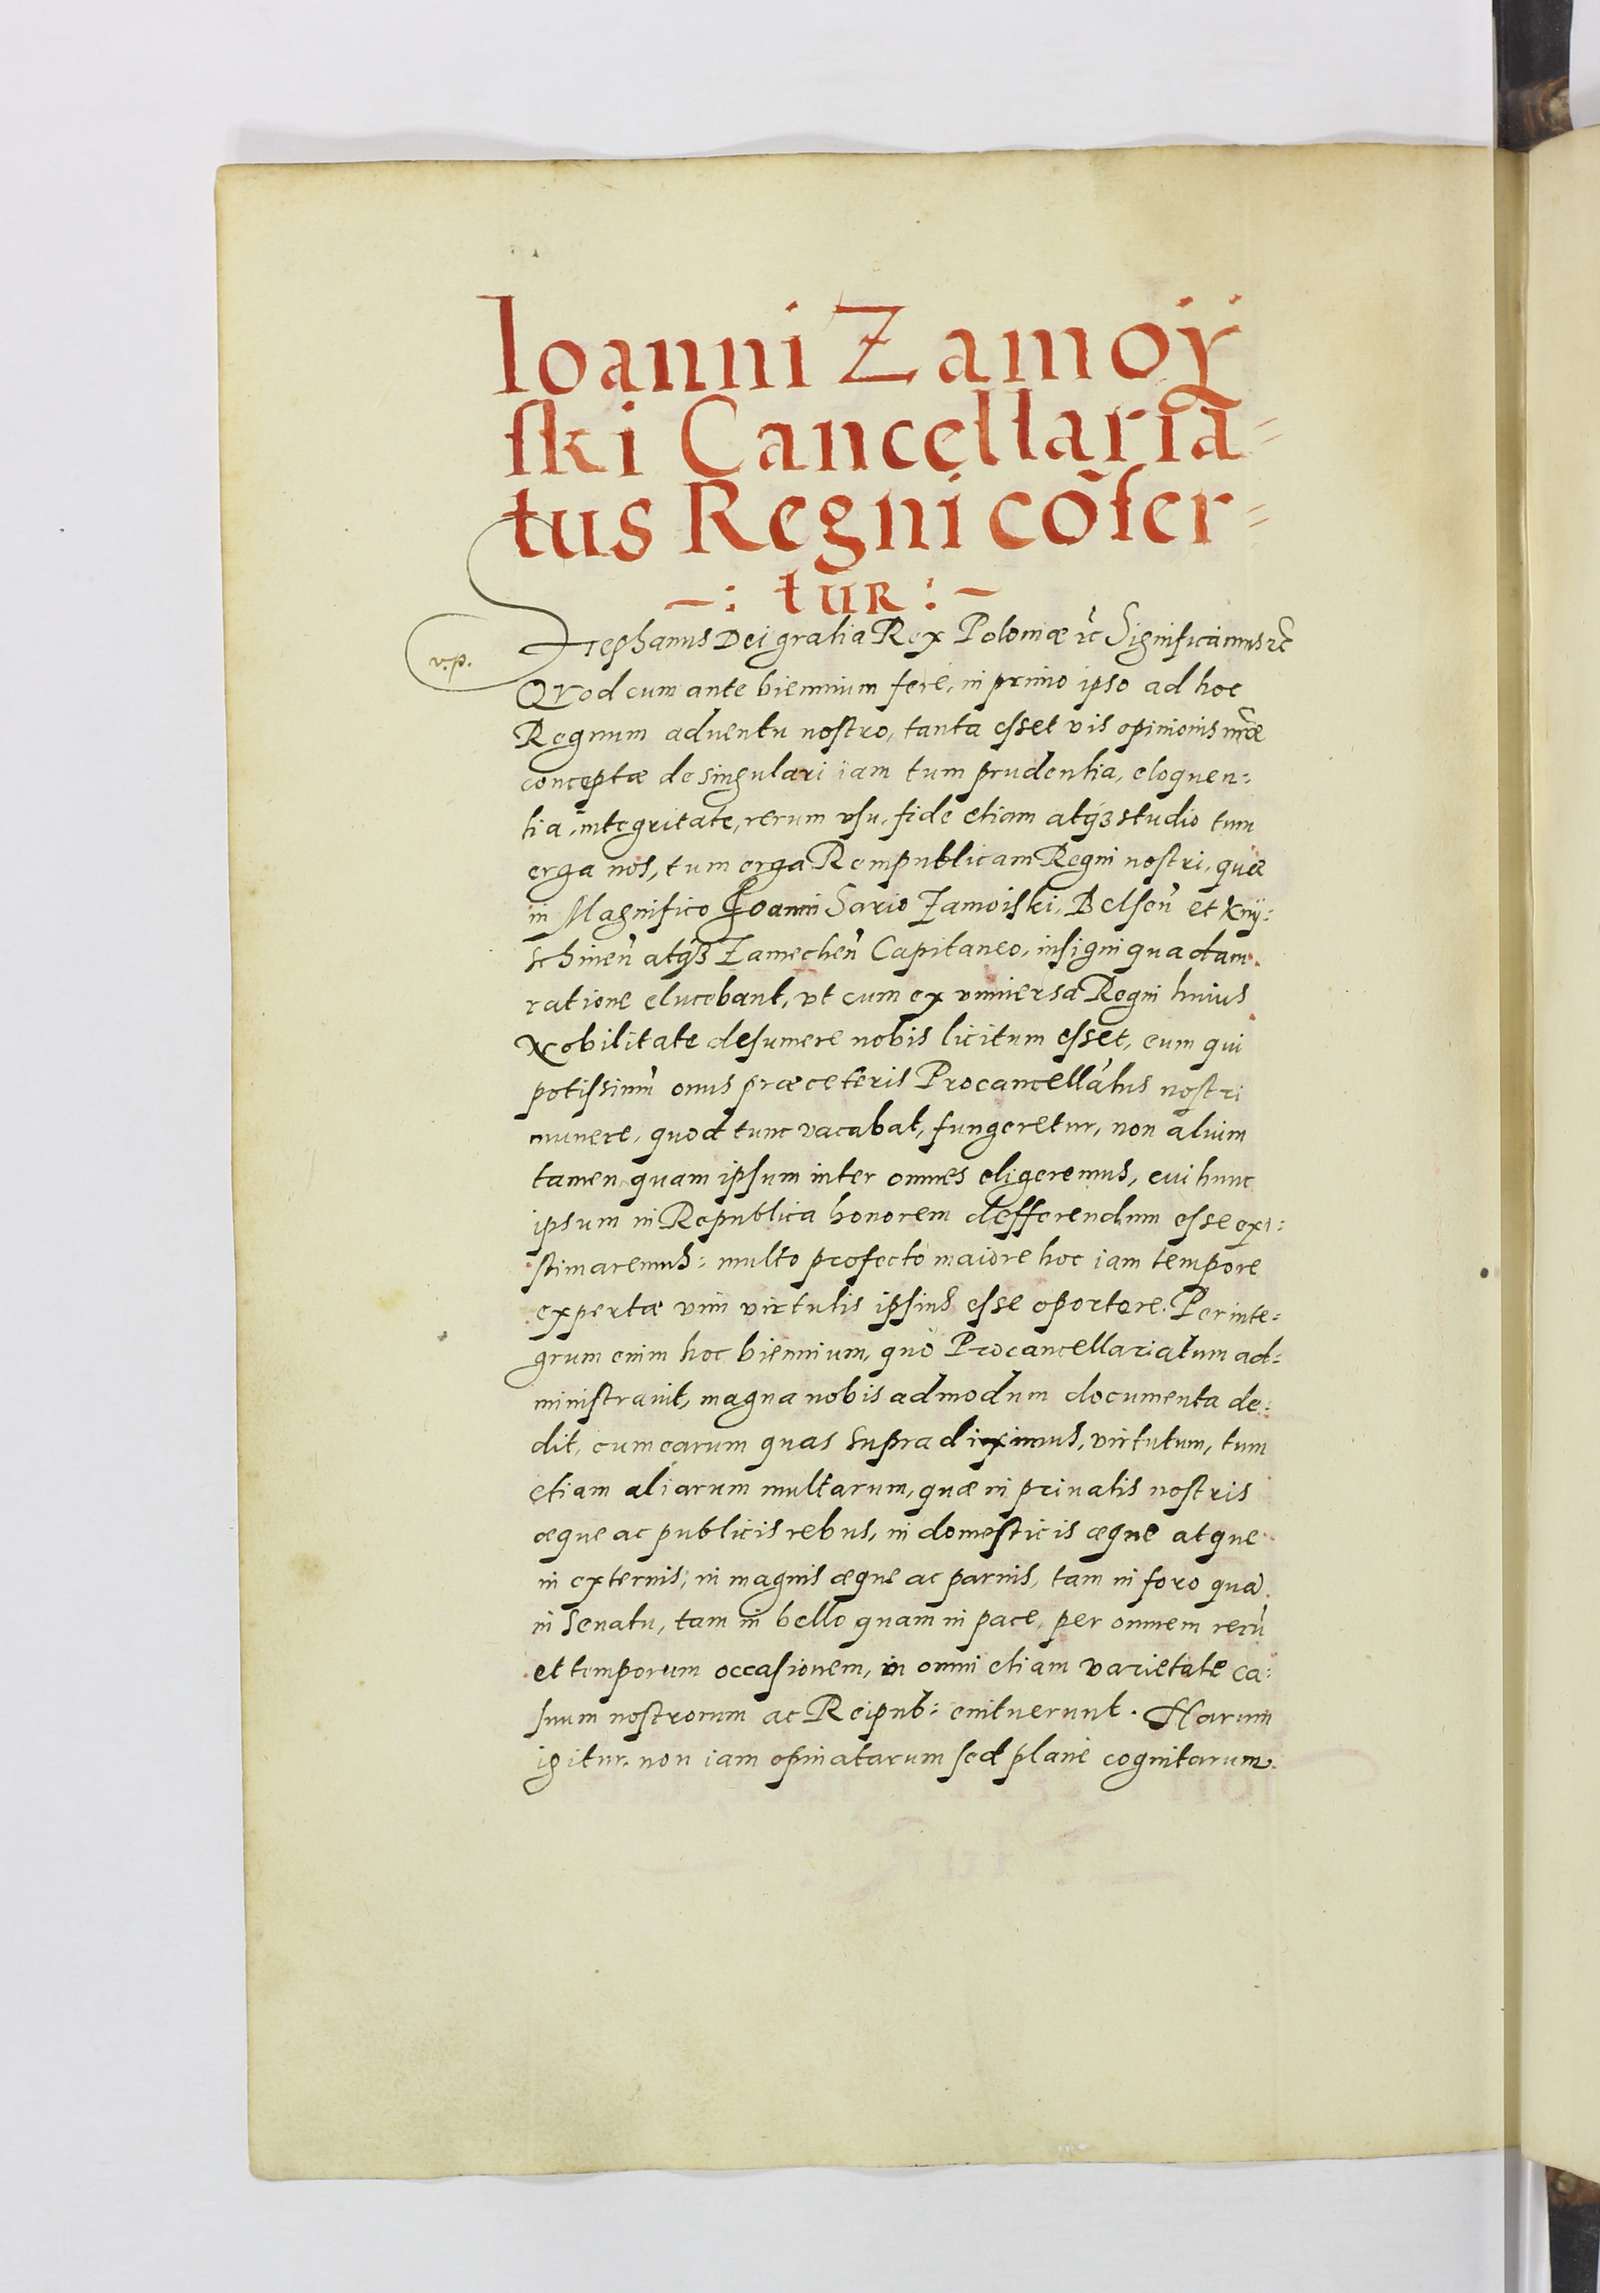 Ioanni Zamoÿ
ſki Cancellaria=
tus Regni cōfer=
–: tur :–
v.p.
Stephanus Dei gratia Rex Poloniæ ꝛc̃ Significamus ꝛc̃
Quod cum ante biennium ferè, in primo ipso ad hoc
Regnum aduentu nostro, tanta esset vis opinionis nr̃æ
conceptæ de singulari iam tum prudentia, eloquen=
tia, integritate, rerum vsu, fide etiam atqꝫ studio tum
erga nos, tum erga Rempublicam Regni nostri, quæ
in Magnifico Joanni Sario Zamoiski, Belsen̄ et Kny=
schinen̄ atqꝫ Zamechen̄ Capitaneo, insigni quadam
ratione elucebant, vt cum ex vniuersa Regni huius
Nobilitate desumere nobis licitum esset, eum qui
potissimū onus præ ceteris Procancellàtus nostri
munere, quod tunc vacabat, fungeretur, non alium
tamen quam ipsum inter omnes eligeremus, cui hunc
ipsum in Republica honorem defferendum esse exi=
stimaremus: multo profecto maiore hoc iam tempore
expertæ vim virtutis ipsius esse oportere. Per inte=
grum enim hoc biennium, quo Procancellariatum ad=
ministrauit, magna nobis admodum documenta de=
dit, cum earum quas supra diximus, virtutum, tum
etiam aliarum multarum, quæ in priuatis nostris
æque ac publicis rebus, in domesticis æque atque
in externis, in magnis æque ac paruis, tam in foro quā
in Senatu, tam in bello quam in pace, per omnem rerū
et temporum occasionem, in omni etiam varietate ca=
suum nostrorum ac Reipub: enituerunt. Harum
igitur, non iam opinatarum sed plane cognitarum